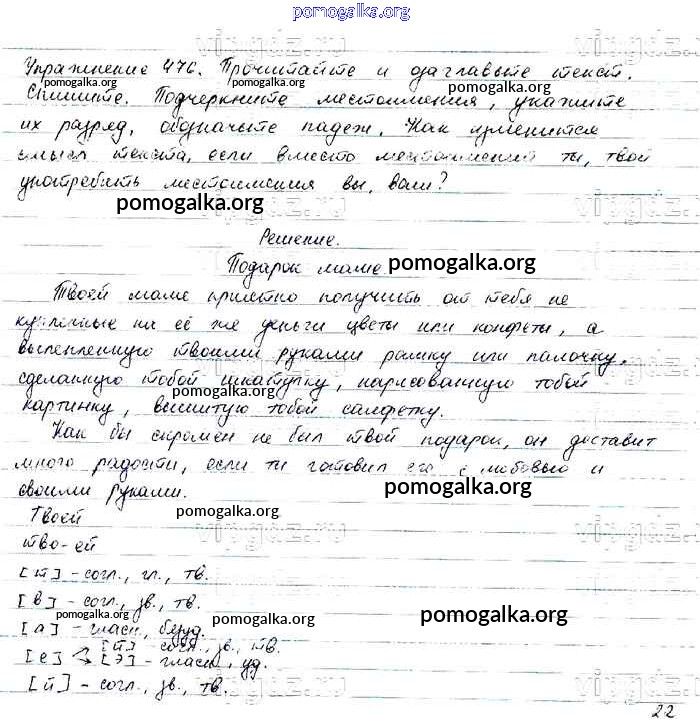 pomogalka.org
Упражнение 476. Прочитайте и озаглавьте текст.
Спишите. Подчеркните местоимения, укажите
их разряд, обозначьте падеж. Как изменится
смысл текста, если вместо местоимений ты, твой
употребить местоимения вы, ваш?
pomogalka.org
Решение.
Подарок маме pomogalka.org
Твоей маме приятно получить от тебя не
купленные на её же деньги цветы или конфеты, а
вылепленную твоими руками рамку или палочку,
сделанную тобой шкатулку, нарисованную тобой
картинку, вышитую тобой салфетку.
Как бы скромен не был твой подарок, он доставит
много радости, если ты готовил его с любовью и
своими руками.
pomogalka.org
Твоей
тво-ей
[т] - согл., гл., тв.
[в] - согл., зв., тв.
pomogalka.org
[а] - гласн., безуд.
[е] [й] - согл., зв., тв.
[э] - гласн., уд.
[й] - согл., зв., тв.
22